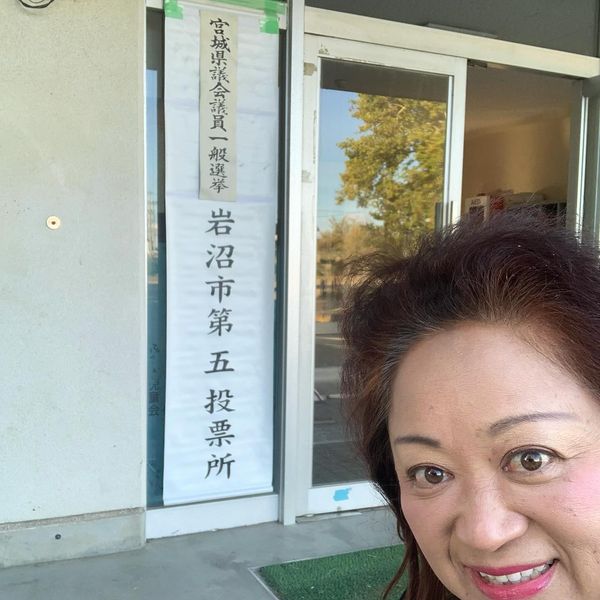 宮城県議会議員一般選挙
岩沼市第五投票所
AED